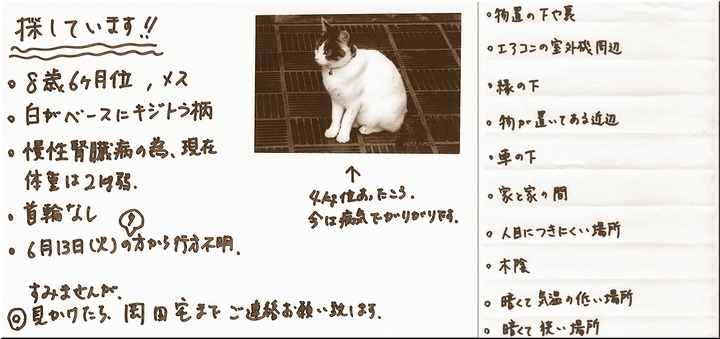 探しています!!
• 8歳6ヶ月位，メス
• 白がベースにキジトラ柄
• 慢性腎臓病の為、現在
体重は2kg弱.
• 首輪なし
• 6月13日(火)の方から行方不明.
すみませんが.
◎見かけたら、岡田宅までご連絡お願い致します.
2017
↑
4kg位あったころ.
今は病気でがりがりです.
• 物置の下や裏
• エアコンの室外機周辺
• 縁の下
• 物が置いてある近辺
• 車の下
• 家と家の間
• 人目につきにくい場所
• 木陰
• 暗くて気温の低い場所
• 暗くて狭い場所